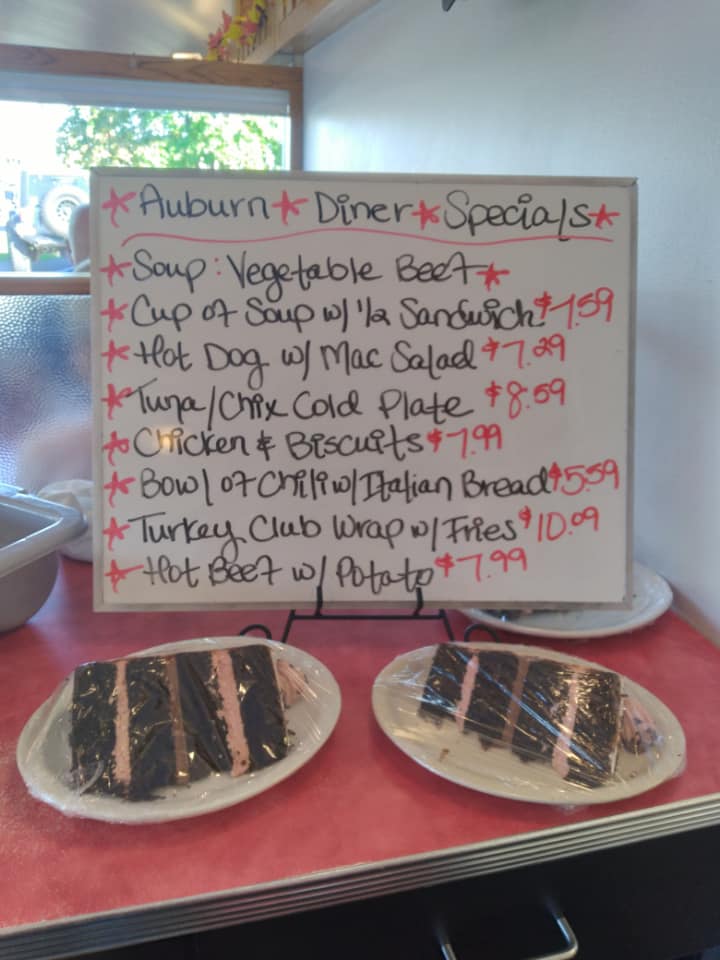 *Auburn*Diner*Specials*
*Soup: Vegetable Beef*
*Cup of Soup w/ 1/2 Sandwich $7.59
*Hot Dog w/ Mac Salad $7.29
*Tuna/Chix Cold Plate $8.59
*Chicken & Biscuits $7.99
*Bowl of Chili w/ Italian Bread $5.59
*Turkey Club Wrap w/ Fries $10.09
*Hot Beef w/ Potato $7.99